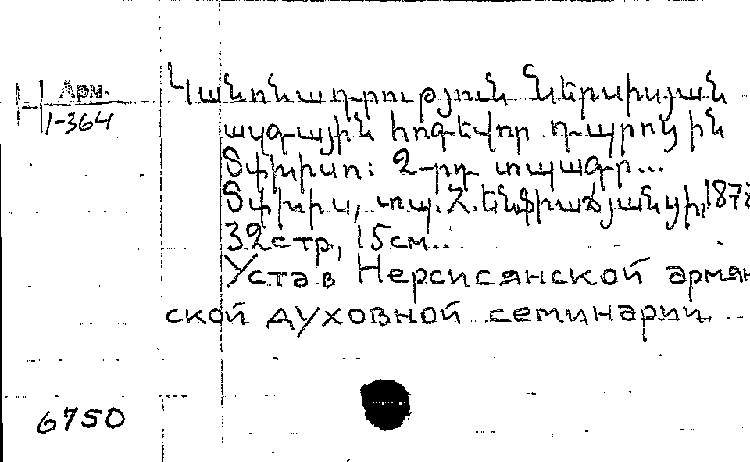 Կանոնադրություն Ներսիսյան
Арм.
Н 1-364
ազգային հոգևոր դպրոցին
Տփխիսո։ 2-րդ տպագր...
Տփխիս, տպ. Հ. Էնֆիաճյանցի, 187
32 стр, 15 см..
Устав Нерсисянской армян
ской духовной семинарии
6750